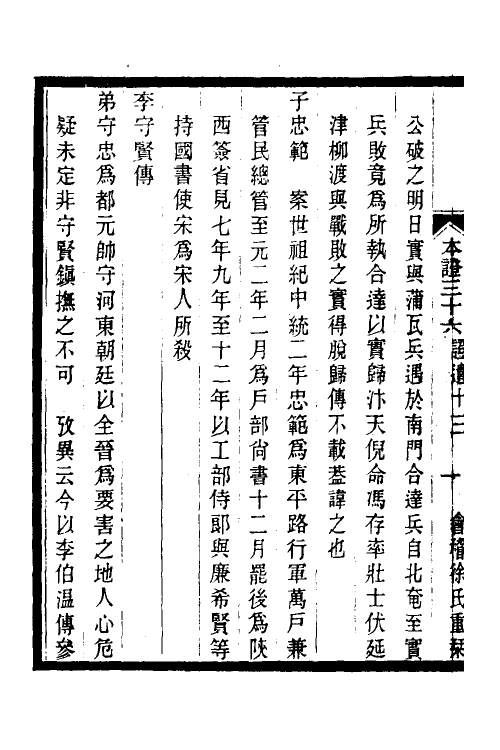 本證三十六　證遺十三　十　會稽徐氏重栞
公破之明日實與蒲瓦兵遇於南門合達兵自北奄至實
兵敗竟爲所執合達以實歸汴天倪命馮存率壯士伏延
津柳渡與戰敗之實得脫歸傳不載蓋諱之也
子忠範　案世祖紀中統二年忠範爲東平路行軍萬戶兼
管民總管至元二年二月爲戶部尙書十二月罷後爲陝
西簽省見七年九年至十二年以工部侍郞與廉希賢等
持國書使宋爲宋人所殺
李守賢傳
弟守忠爲都元帥守河東朝廷以全晉爲要害之地人心危
疑未定非守賢鎭撫之不可　攷異云今以李伯温傳參